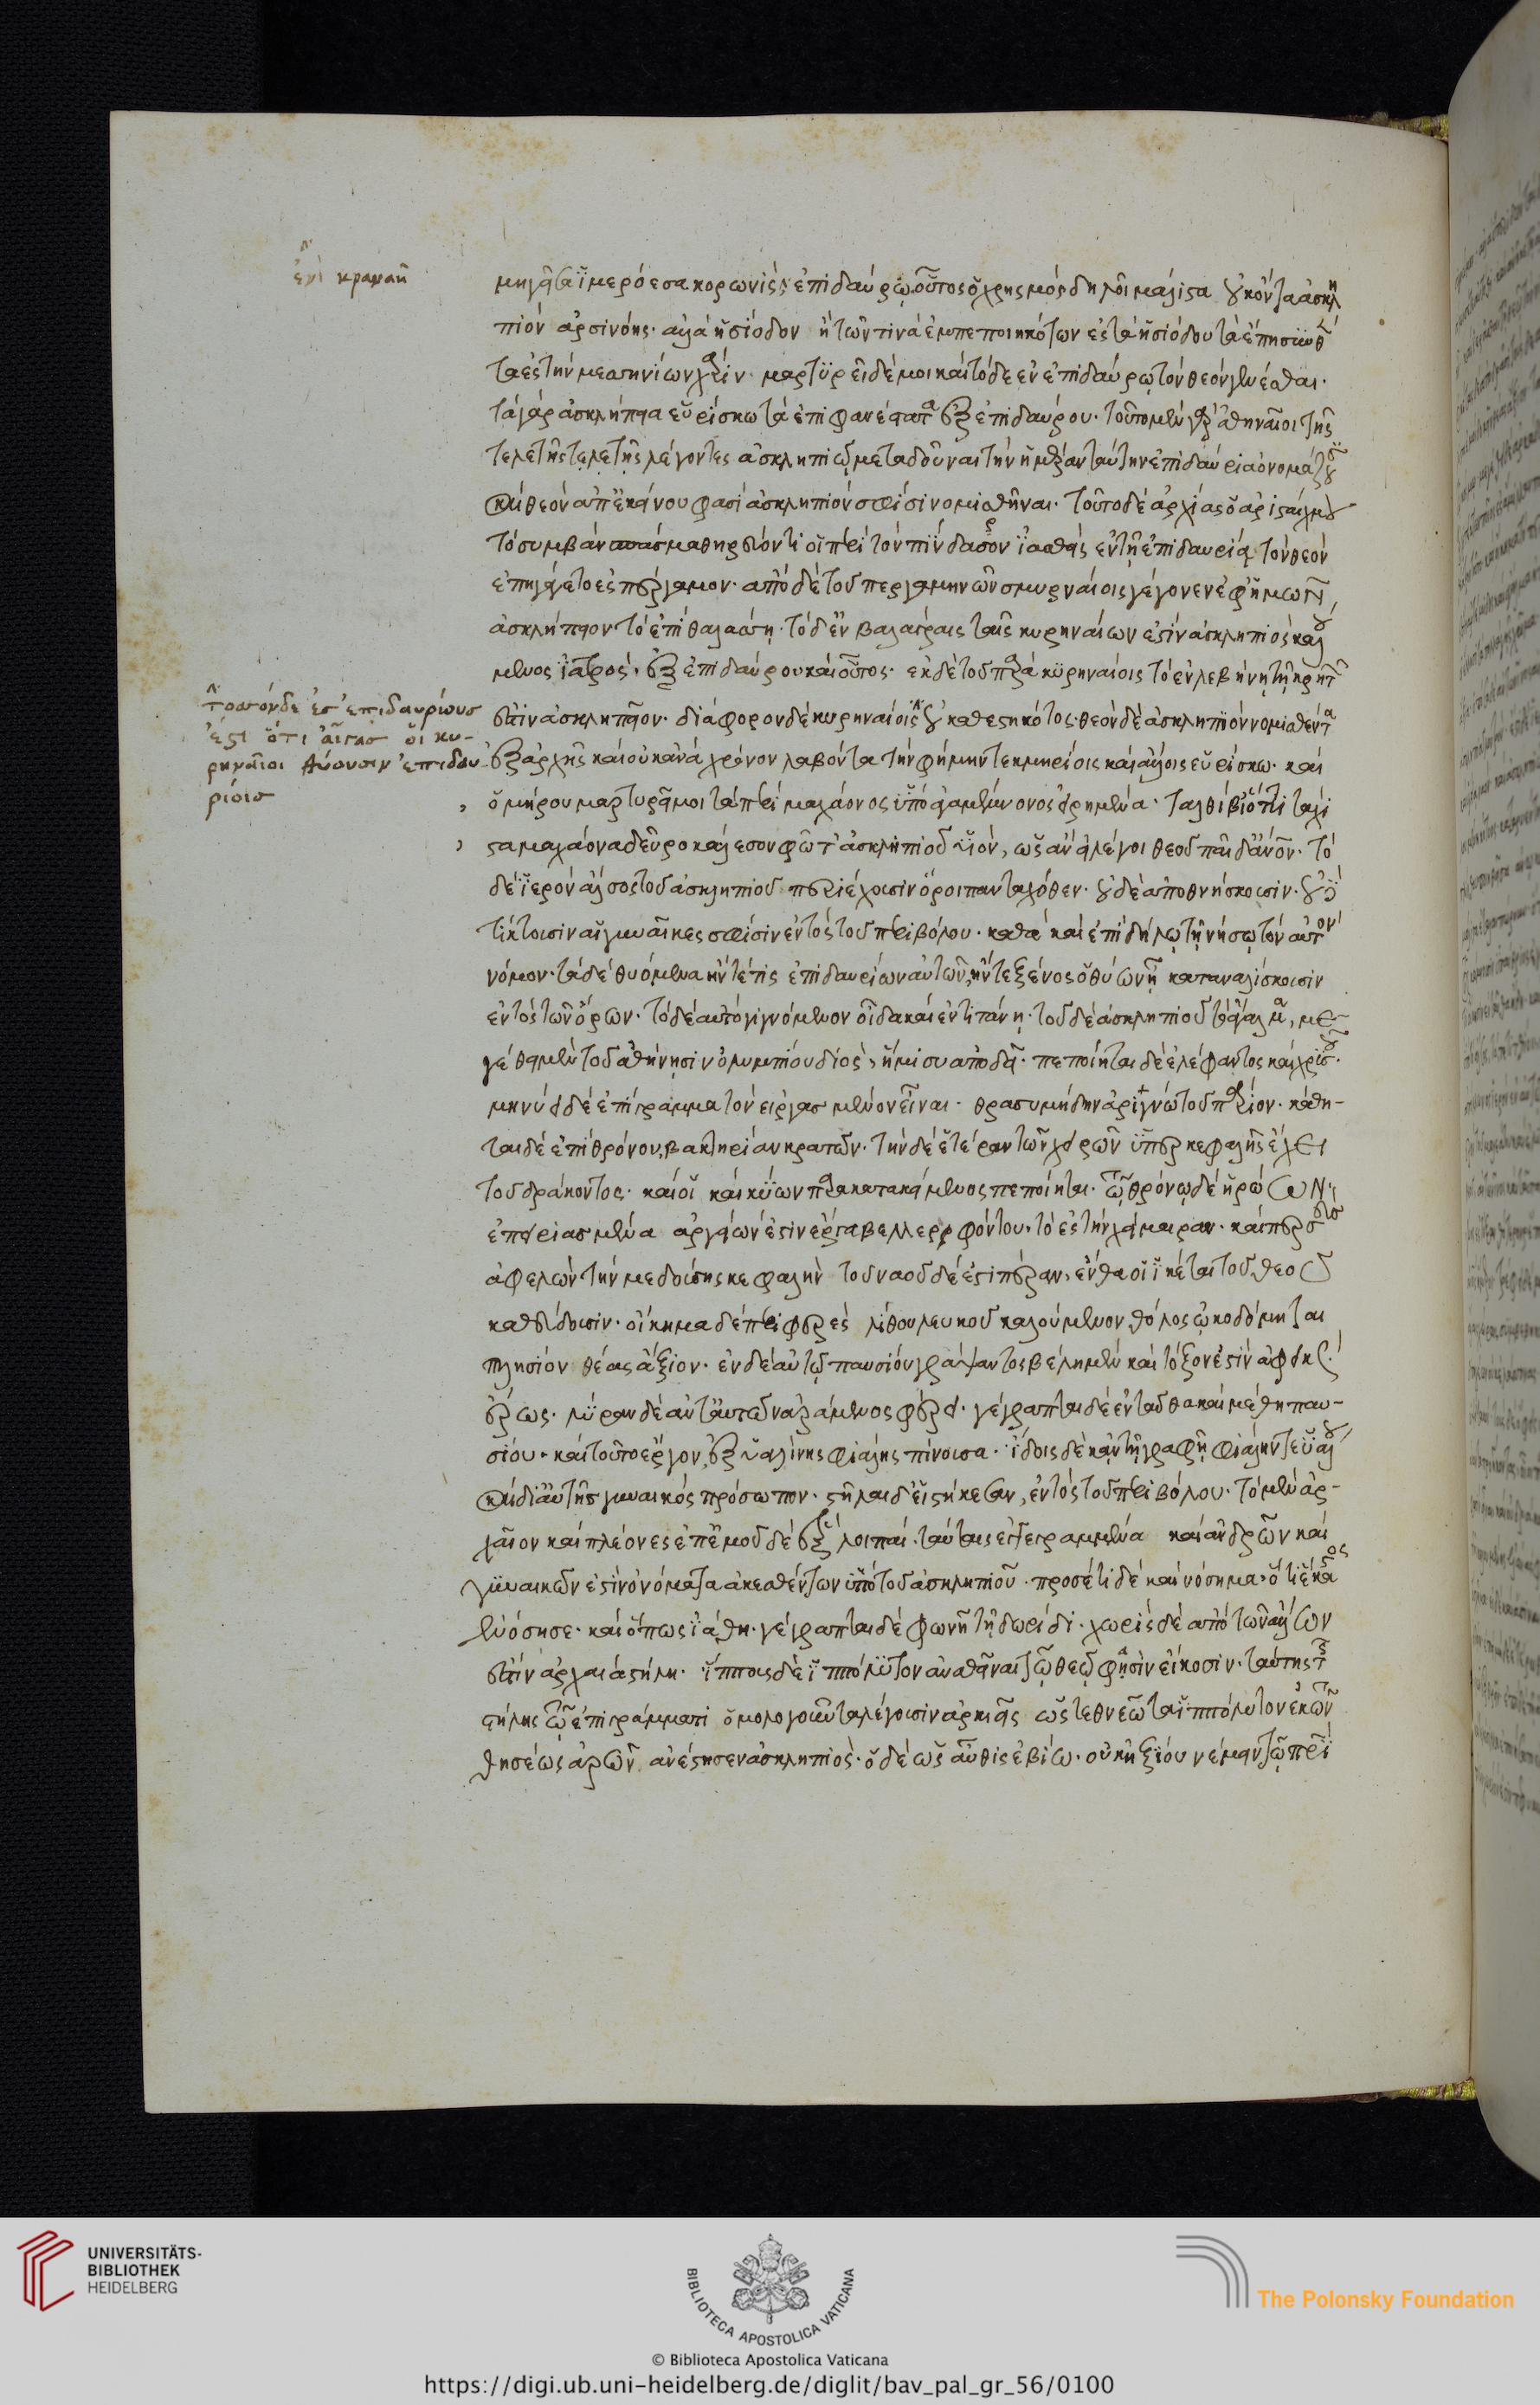 ἐνὶ κραναῆ
τοσόνδε ἐσ ἐπιδαυρίουσ
ἐστ ὅτι αἶγασ οἱ κυ-
ρηναῖοι θύουσιν ἐπιδαυ-
ρίοισ
μηγεῖσα ἱμερόεσα κορωνὶς ἐπιδαύρῳ. οὗτος ὁ χρησμὸς δηλοῖ μάλιστα οὐκ ὄντα ἀσκλη
πιὸν ἀρσινόης. ἀλλὰ ἡσίοδον ἢ τῶν τινὰ ἐμπεποιηκότων ἐς τὰ ἡσιόδου τὰ ἔπη συνθέν
τα ἐς τὴν μεσηνίων χάριν. μαρτυρεῖ δέ μοι καὶ τόδε ἐν ἐπιδαύρῳ τὸν θεὸν γενέσθαι.
τὰ γὰρ ἀσκληπιεῖα εὑρίσκω τὰ ἐπιφανέστατα ἐξ ἐπιδαύρου. τοῦτο μὲν γὰρ ἀθηναῖοι τῆς
τελετῆς τελετῆς λέγοντες ἀσκληπιῷ μεταδοῦναι τὴν ἡμέραν ταύτην ἐπιδαύρια ὀνομάζουσι
καὶ θεὸν ἀπ' ἐκείνου φασὶ ἀσκληπιόν σφίσι νομισθῆναι. τοῦτο δὲ ἀρχίας ὁ ἀρισταίχμου
τὸ συμβὰν σπάσμα θηρεύοντί οἱ περὶ τὸν πίνδασον ἰαθεὶς ἐν τῇ ἐπιδαυρίᾳ τὸν θεὸν
ἐπηγάγετο ἐς πέργαμον. ἀπὸ δὲ τοῦ περγαμηνῶν σμυρναίοις γέγονεν ἐφ' ἡμῶν
ἀσκληπιεῖον τὸ ἐπὶ θαλάσσῃ. τὸ δ' ἐν βαλάγραις ταῖς κυρηναίων ἐστὶν ἀσκληπιὸς καλού
μενος ἰατρός. ἐξ ἐπιδαύρου καὶ οὗτος. ἐκ δὲ τοῦ παρὰ κυρηναίοις τὸ ἐν λεβήνῃ τῇ κρητῶν
ἐστὶν ἀσκληπιεῖον. διάφορον δὲ κυρηναίοις οὐ καθεστηκότος. θεὸν δὲ ἀσκληπιὸν νομισθέντα
ἐξ ἀρχῆς καὶ οὐκ ἀνὰ χρόνον λαβόντα τὴν φήμην τεκμηρίοις καὶ ἄλλοις εὑρίσκω. καὶ
ὁμήρου μαρτυρεῖ μοι τὰ περὶ μαχάονος ὑπὸ ἀγαμέμνονος εἰρημένα. ταλθύβι' ὅττι τάχι
στα μαχάονα δεῦρο κάλεσον φῶτ' ἀσκληπιοῦ υἱόν, ὡς ἂν εἰ λέγοι θεοῦ παῖδα ἄνθρωπον. τὸ
δὲ ἱερὸν ἄλσος τοῦ ἀσκληπιοῦ περιέχουσιν ὅροι πανταχόθεν. οὐδὲ ἀποθνήσκουσιν. οὐδὲ
τίκτουσιν αἱ γυναῖκες σφίσιν ἐντὸς τοῦ περιβόλου. καθὰ καὶ ἐπὶ δήλῳ τῇ νήσῳ τὸν αὐτὸν
νόμον. τὰ δὲ θυόμενα ἤν τέ τις ἐπιδαυρίων αὐτῶν, ἤν τε ξένος ὁ θύων ᾖ καταναλίσκουσιν
ἐντὸς τῶν ὅρων. τὸ δὲ αὐτὸ γιγνόμενον οἶδα καὶ ἐν τιτάνῃ. τοῦ δὲ ἀσκληπιοῦ τὸ ἄγαλμα, με-
γέθει μὲν τοῦ ἀθήνησιν ὀλυμπίου διός, ἥμισυ ἀποδεῖ. πεποίηται δὲ ἐλέφαντος καὶ χρυσοῦ.
μηνύει δὲ ἐπίγραμμα τὸν εἰργασμένον εἶναι. θρασυμήδην ἀριγνώτου πάριον. κάθη-
ται δὲ ἐπὶ θρόνου, βακτηρίαν κρατῶν. τὴν δὲ ἑτέραν τῶν χειρῶν ὑπὲρ κεφαλῆς ἔχει
τοῦ δράκοντος. καί οἱ καὶ κύων παρακατακείμενος πεποίηται. τῷ θρόνῳ δὲ ἡρώων
ἐπειργασμένα ἀργείων ἐστὶν ἔργα βελλεροφόντου. τὸ ἐς τὴν χίμαιραν. καὶ περσεὺς
ἀφελὼν τὴν μεδούσης κεφαλὴν τοῦ ναοῦ δέ ἐστι πέραν, ἔνθα οἱ ἱκέται τοῦ θεοῦ
καθεύδουσιν. οἴκημα δὲ περιφερὲς λίθου λευκοῦ καλούμενον, θόλος ᾠκοδόμηται
πλησίον θέας ἄξιον. ἐν δὲ αὐτῷ παυσίου γράψαντος βέλη μὲν καὶ τόξον ἐστὶν ἀφεικὼς
ἔρως. λύραν δὲ ἀντ' αὐτῶν ἀράμενος φέρει. γέγραπται δὲ ἐνταῦθα καὶ μέθη παυ-
σίου. καὶ τοῦτο ἔργον, ἐξ ὑαλίνης φιάλης πίνουσα. ἴδοις δὲ κἂν τῇ γραφῇ φιάλην τε ὑάλου
καὶ δι' αὐτῆς γυναικὸς πρόσωπον. στῆλαι δὲ εἱστήκεσαν, ἐντὸς τοῦ περιβόλου. τὸ μὲν ἀρ-
χαῖον καὶ πλέονες ἐπ' ἐμοῦ δὲ ἓξ λοιπαί. ταύταις ἐγγεγραμμένα καὶ ἀνδρῶν καὶ
γυναικῶν ἐστὶν ὀνόματα ἀκεσθέντων ὑπὸ τοῦ ἀσκληπιοῦ. προσέτι δὲ καὶ νόσημα. ὅτι ἕκαστος
ἐνόσησε. καὶ ὅπως ἰάθη. γέγραπται δὲ φωνῇ τῇ δωρίδι. χωρὶς δὲ ἀπὸ τῶν ἄλλων
ἐστὶν ἀρχαία στήλη. ἵππους δὲ ἱππόλυτον ἀναθεῖναι τῷ θεῷ φησὶν εἴκοσιν. ταύτης τῆς
στήλης τῷ ἐπιγράμματι ὁμολογοῦντα λέγουσιν ἀρικιεῖς ὡς τεθνεῶτα ἱππόλυτον ἐκ τῶν
θησέως ἀρῶν ἀνέστησεν ἀσκληπιός. ὁ δὲ ὡς αὖθις ἐβίω. οὐκ ἠξίου νέμειν τῷ πατρὶ
UNIVERSITÄTS-
BIBLIOTHEK
HEIDELBERG
BIBLIOTECA APOSTOLICA VATICANA
The Polonsky Foundation
© Biblioteca Apostolica Vaticana
https://digi.ub.uni-heidelberg.de/diglit/bav_pal_gr_56/0100